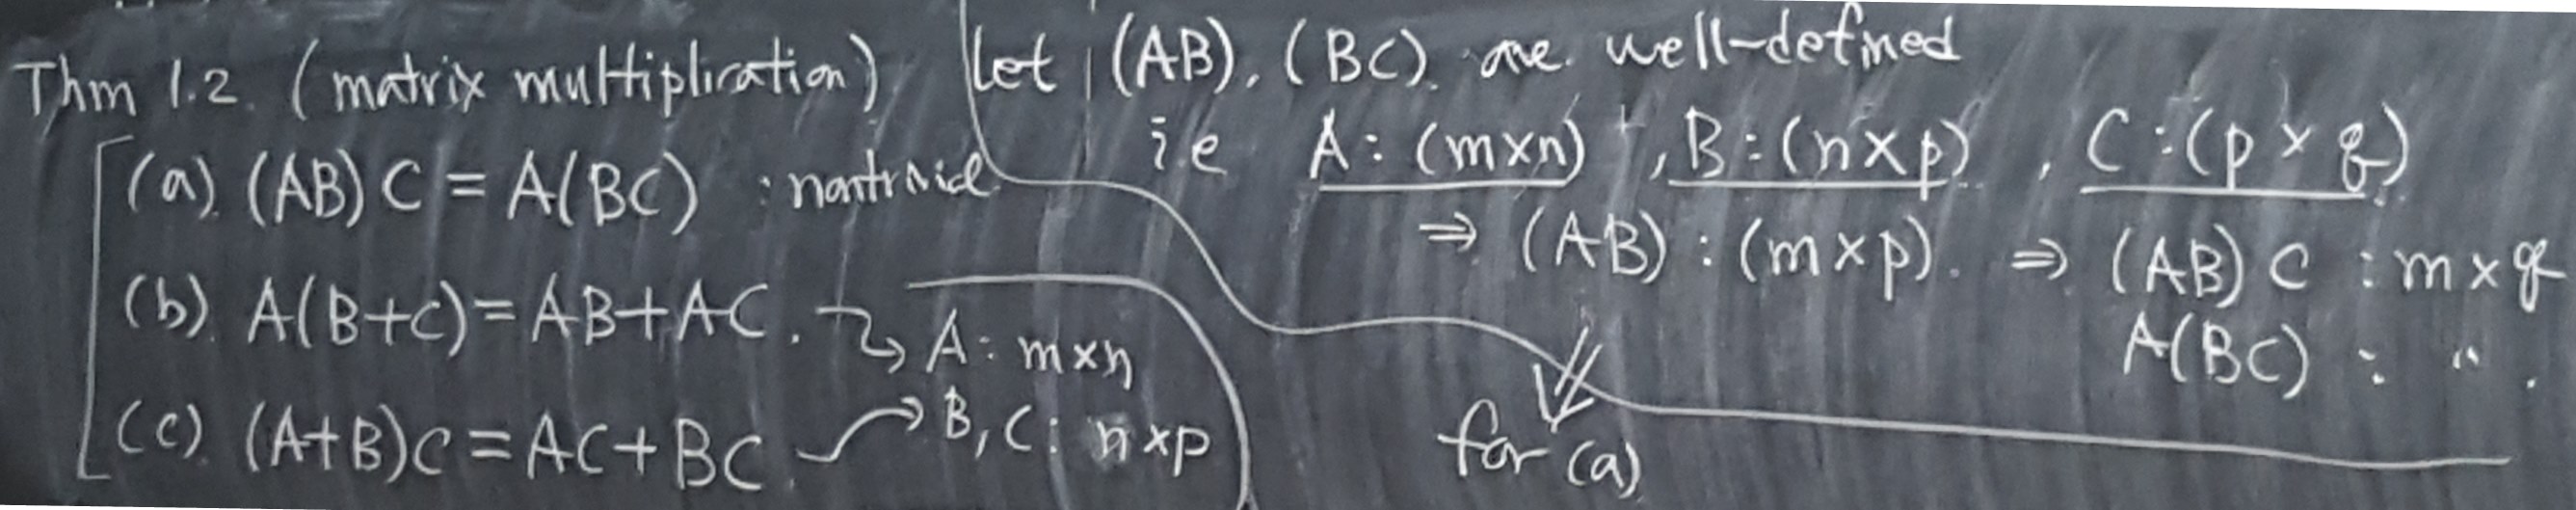 Thm 1.2. (matrix multiplication)
(a). (AB)C = A(BC) : nontrivial
(b). A(B+C) = AB+AC.
(c). (A+B)C = AC+BC
A: m×n
B, C: n×p
Let (AB), (BC). are well-defined
i.e A: (m×n), B: (n×p), C: (p×q)
⇒ (AB) : (m×p). ⇒ (AB)C : m×q
A(BC) : " .
for (a)